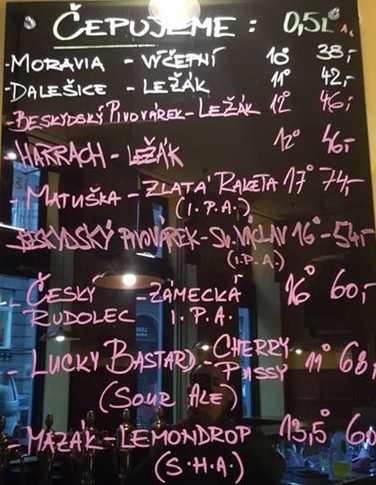 ČEPUJEME: 0,5L
-MORAVIA - VÝČEPNÍ 10° 38,-
-DALEŠICE - LEŽÁK 11° 42,-
-BESKYDSKÝ PIVOVÁREK-LEŽÁK 12° 46,-
HARRACH-LEŽÁK 12° 46,-
-MATUŠKA-ZLATÁ RAKETA 17° 74,-
(I.P.A.)
-BESKYDSKÝ PIVOVÁREK-SV. VÁCLAV 16°-54,-
(I.P.A.)
-ČESKÝ -ZÁMECKÁ 16° 60,-
RUDOLEC I.P.A.
-LUCKY BASTARD-CHERRY 11° 68,
PUSSY
(SOUR ALE)
-MAZÁK-LEMONDROP 13,5° 60
(S.H.A.)